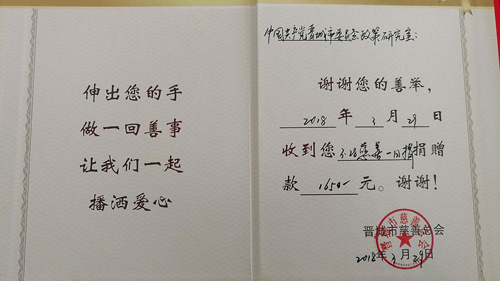 伸出您的手
做一回善事
让我们一起
播洒爱心
中国共产党晋城市委员会政策研究室:
谢谢您的善举,
2018 年 3 月 29 日
收到您 慈善一日捐捐赠
款 1650 元。谢谢!
晋城市慈善总会
2018年 3 月 29日
晋城市慈善总会